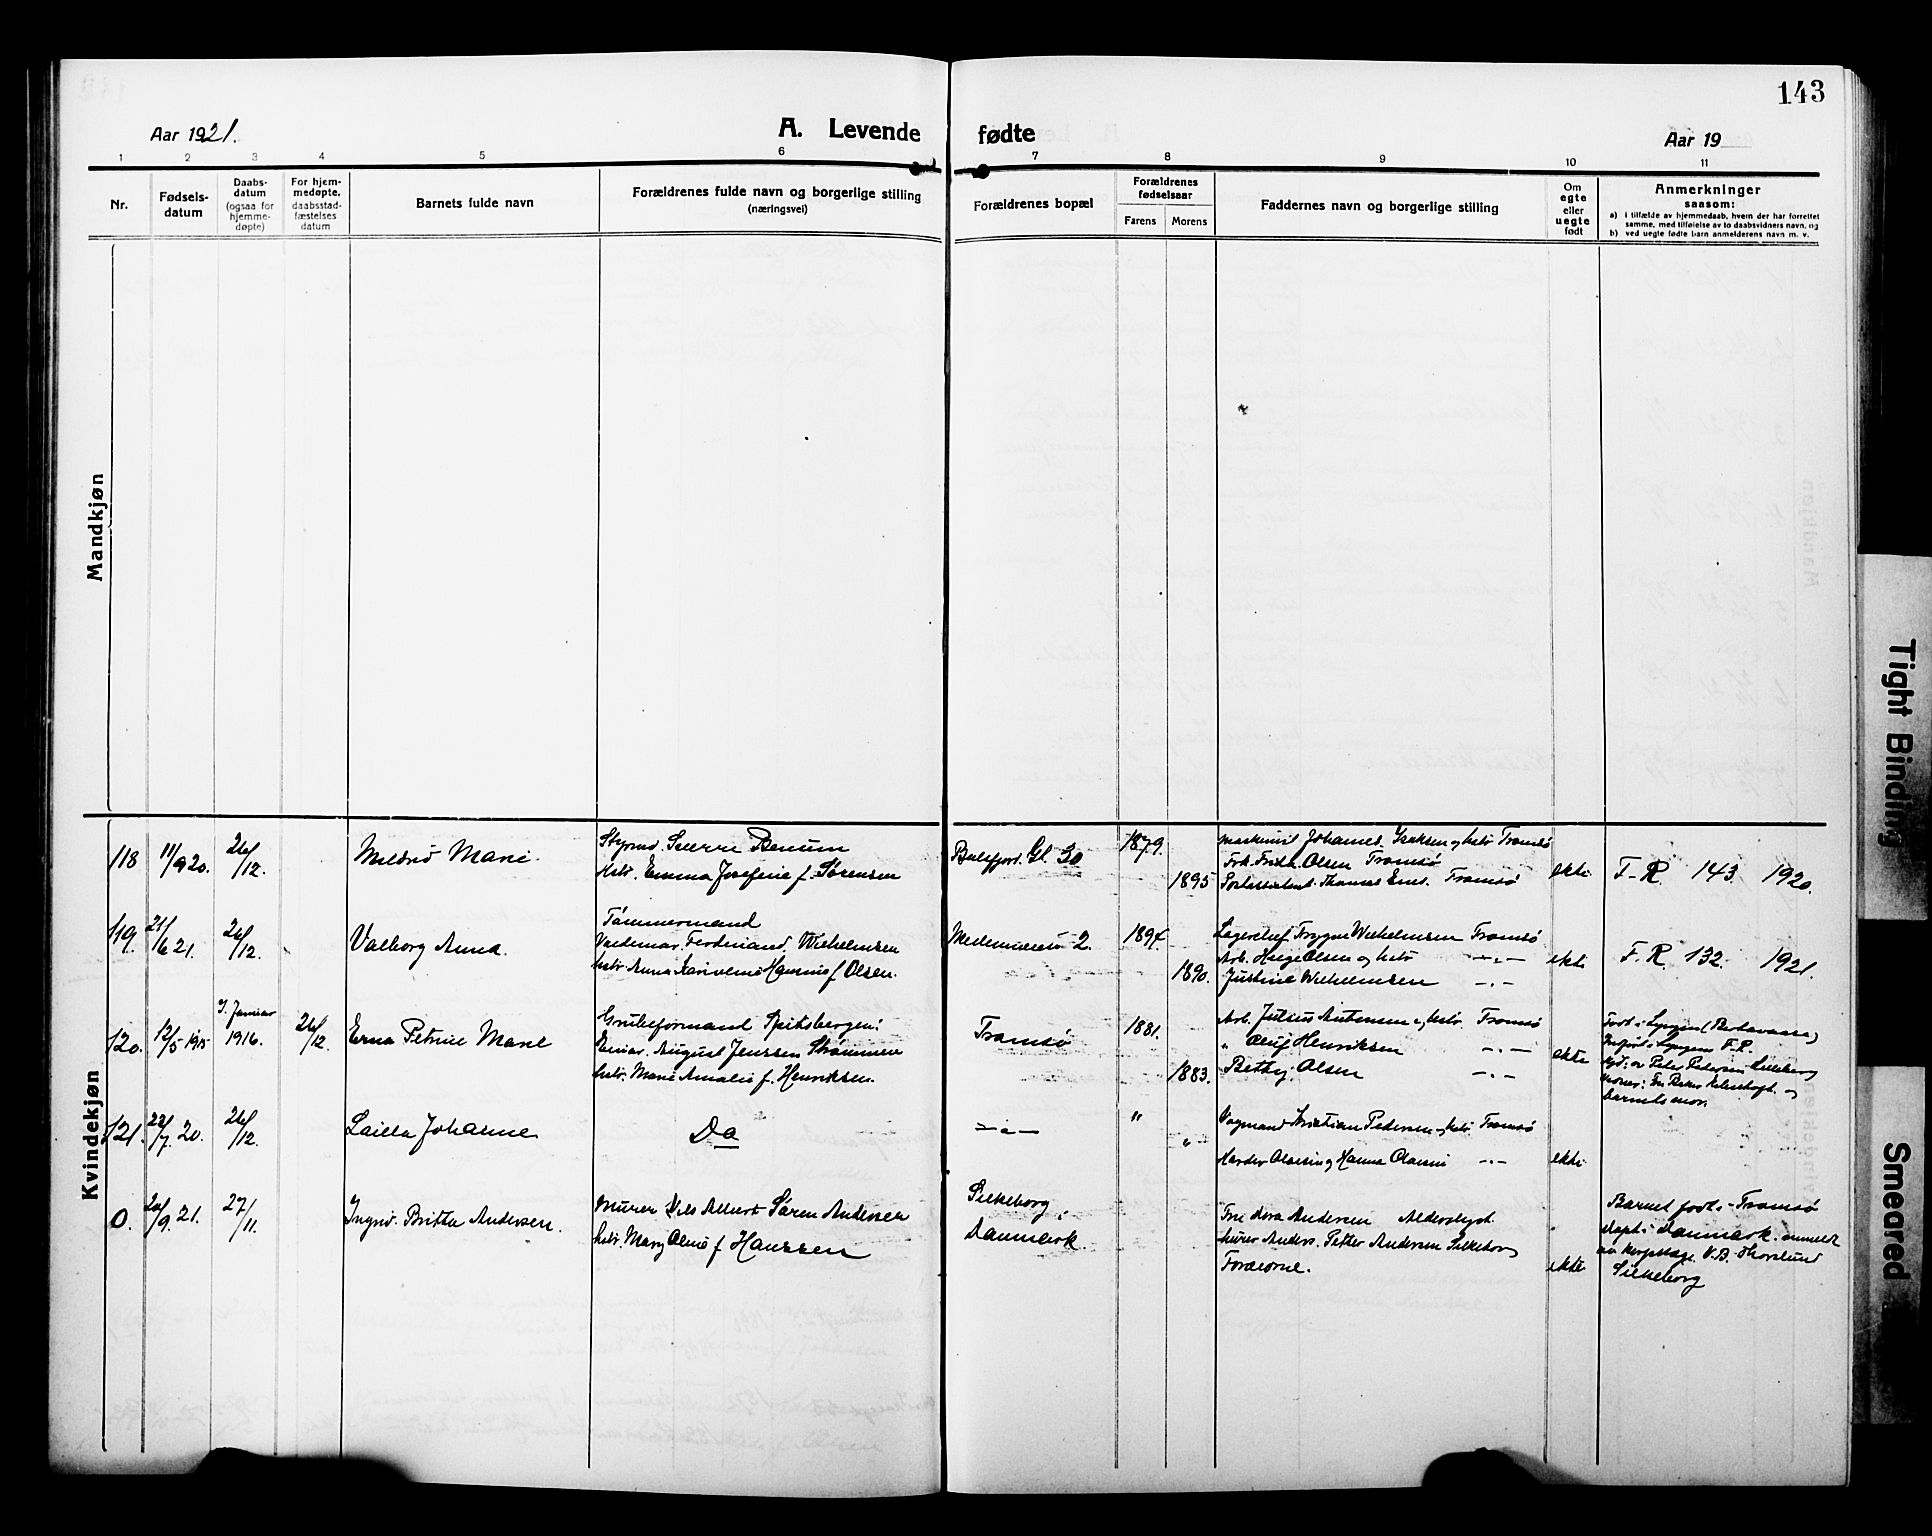 143
Aar 1921.
A. Levende fødte
Aar 19
1 2 3 4 5 6 7 8 9 10 11
Nr.
Fødsels-
datum
Daabs-
datum
(ogsaa for
hjemme-
døpte)
For hjem-
medøpte,
daabsstad-
fæstelses
datum
Barnets fulde navn
Forældrenes fulde navn og borgerlige stilling
(næringsvei)
Forældrenes bopæl
Forældrenes
fødselsaar
Farens
Morens
Faddernes navn og borgerlige stilling
Om
egte
eller
uegte
født
Anmerkninger
saasom:
a) i tilfælde av hjemmedaab, hvem der har forrettet
samme, med tilføielse av to daabsvidners navn, og
b) ved uegte fødte barn anmelderens navn m. v.
Mandkjøn
Kvindekjøn
118
11/9 20.
26/12.
Mildrid Marie.
Styrmd. Sverre Benum
hstr. Emma Josefine f. Sørensen
Balsfjord. Gt. 30
1879.
1895
Johannes Isaksen og hstr Tromsø
Fredr. Olsen Tromsø
Thomas Tromsø
ekte
F-R. 143 1920.
119.
21/6 21.
26/12.
Valborg Anna.
Tømmermand
Valdemar Ferdinand Wilhelmsen
hstr. Anna f. Olsen.
2.
1894
1890.
Lagerchef Trygve Wilhelmsen Tromsø
Arb. Helge Olsen og hstr -"-
Justine Wilhelmsen -"-
ekte
F.R. 132. 1921.
120.
12/5 1915
9. Januar
1916.
26/12.
Erna Petrine Marie
Grubeformand Spitsbergen:
Einar August Jenssen Strømmen
hstr. Marie Amalie f. Henriksen.
Tromsø
1881.
1883.
Arb. Julius Antonsen og hstr. Tromsø
" Oluf Henriksen -"-
Bethy Olsen -"-
ekte
Født i Lyngen
Indført i Lyngens F-R.
Peder Pedersen
barnets mor.
121.
22/7 20.
26/12.
Lailla Johanne
Do
-"-
"
"
Kristian Pedersen og hstr Tromsø
Hanna -"-
ekte
0.
20/9 21.
27/11.
Ingrid Britta Andersen.
Murer Nils Albert Søren Andersen
hstr. Mary Oline f. Hanssen
Silkeborg,
Danmark.
Fru Dora Andersen
Murer Anders Petter Andersen Silkeborg
Forældrene.
ekte
Barnet født i Tromsø
døpt i Danmark. anmeldt
av V.B. Thorslund
Silkeborg
Tight Binding
Smeared